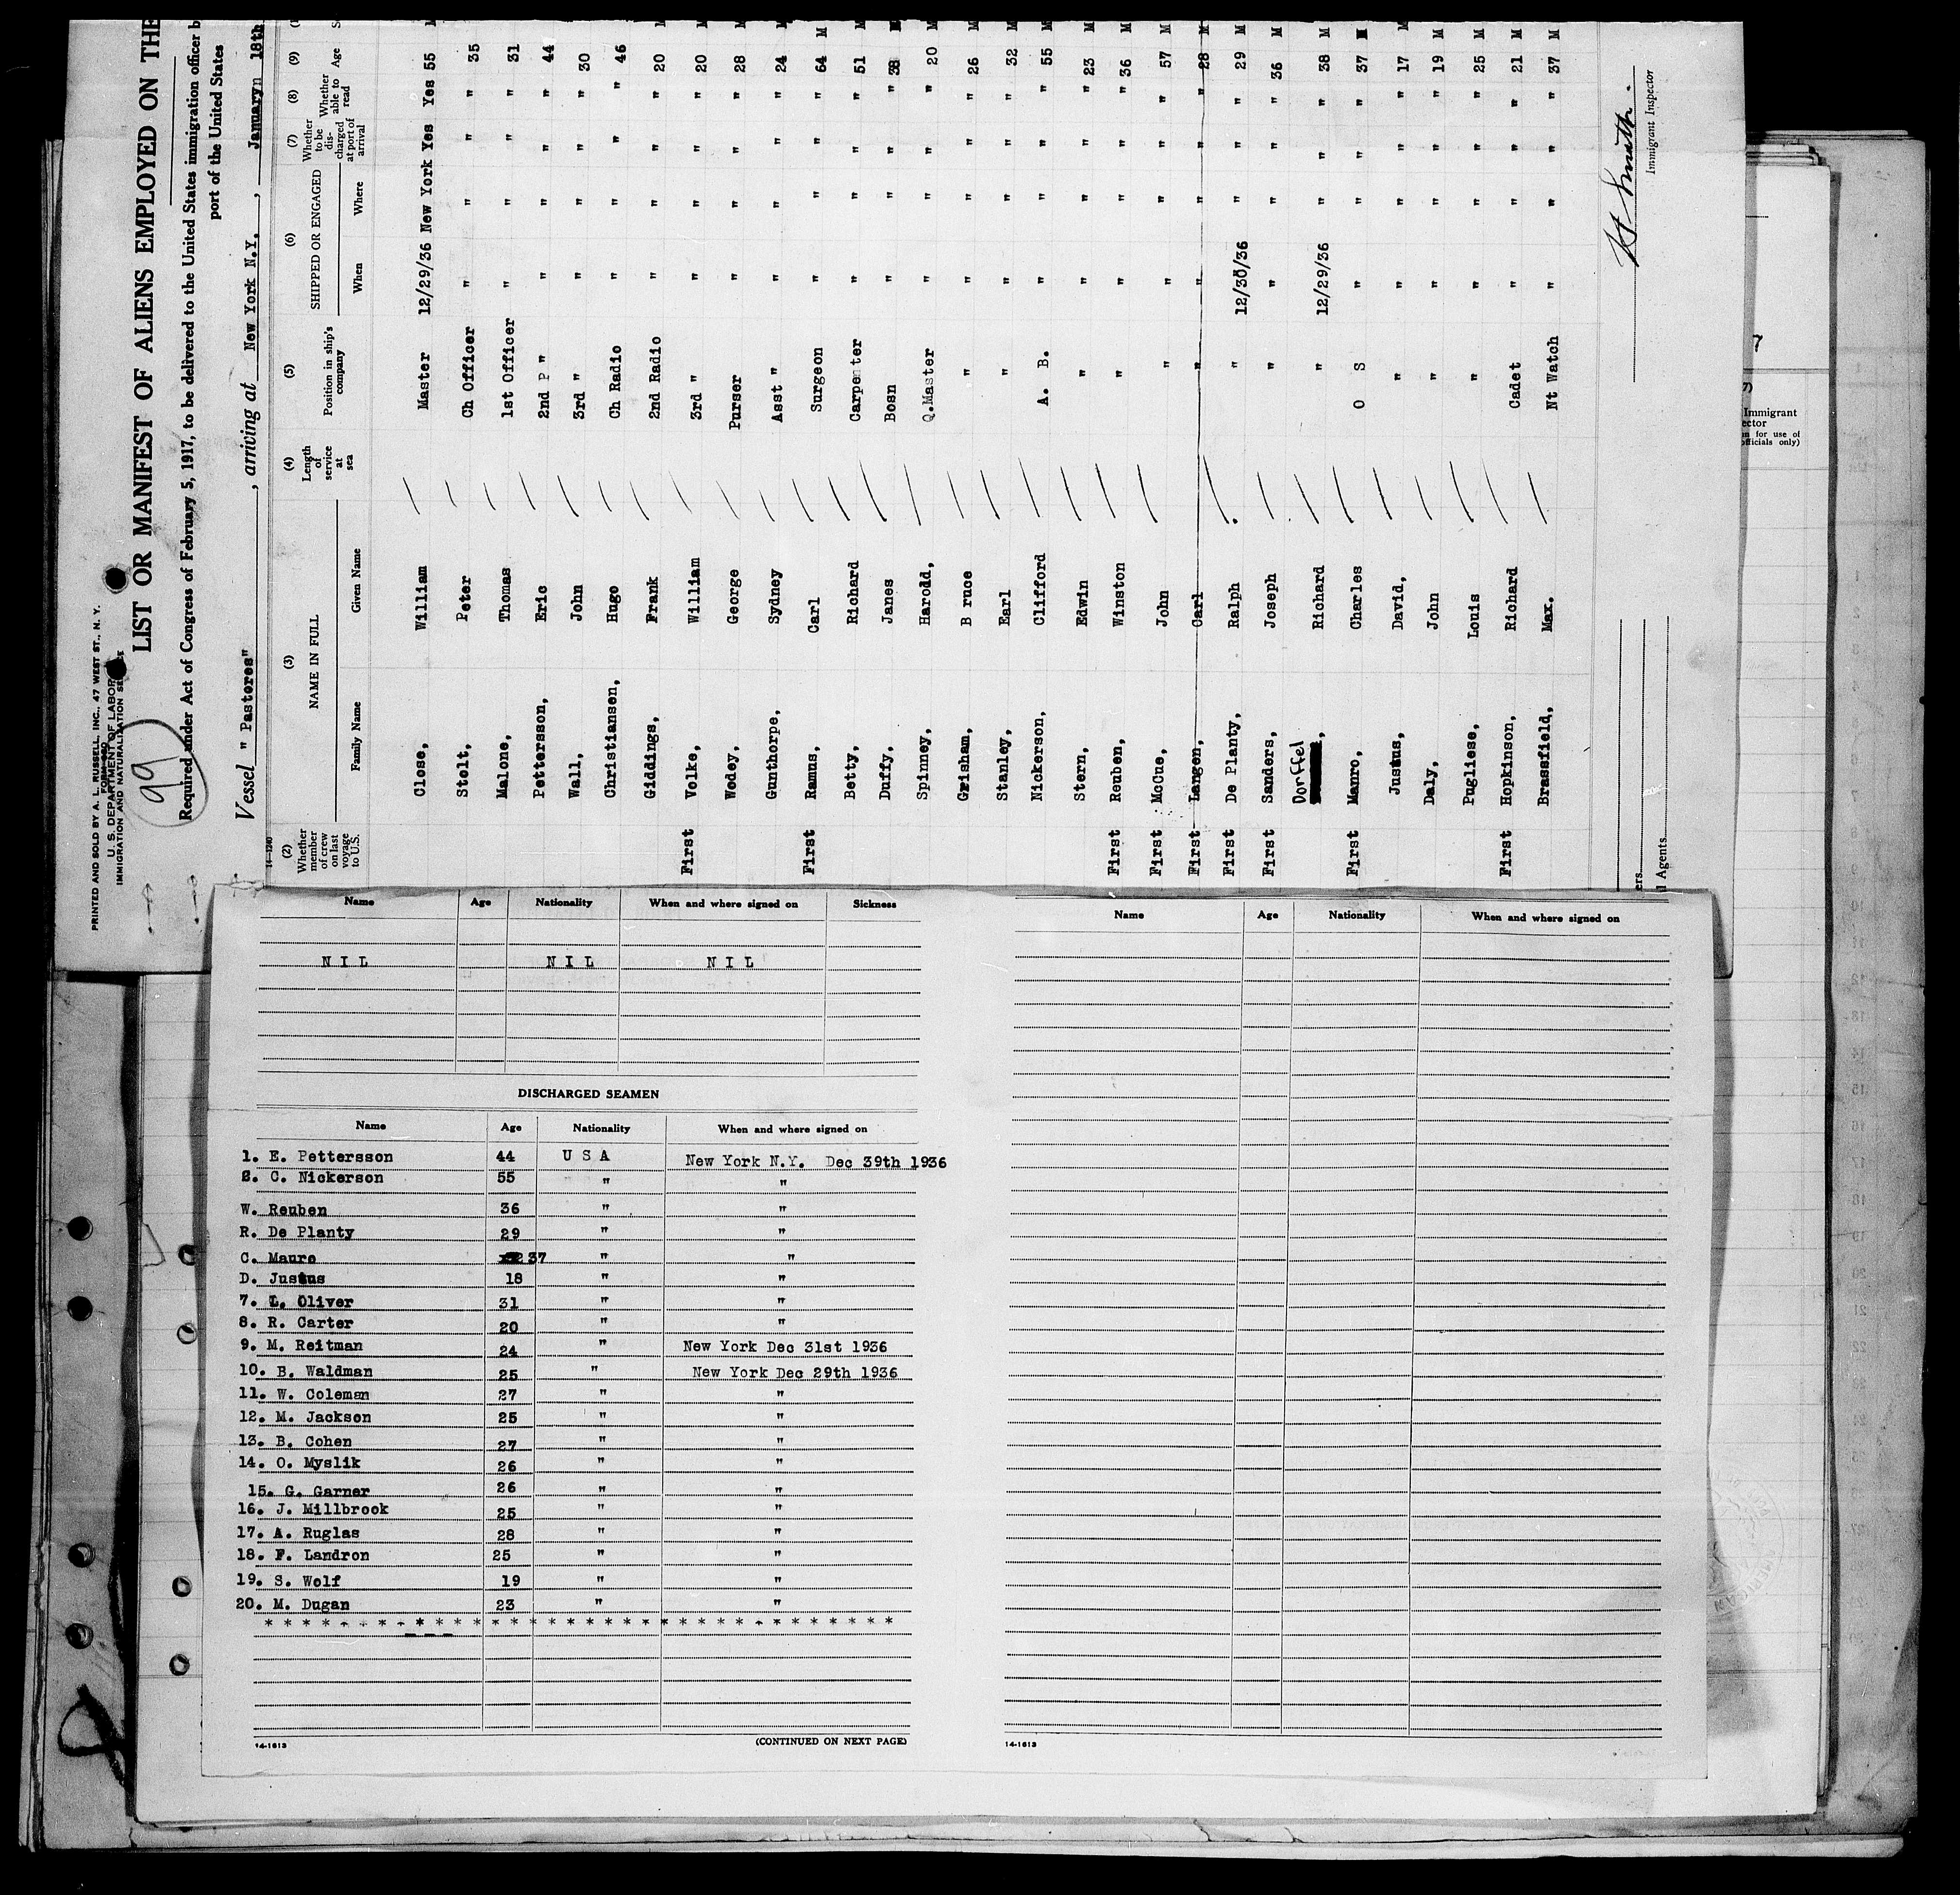 PRINTED AND SOLD BY A. L. RUSSELL, INC., 47 WEST ST., N. Y.
U. S. DEPARTMENT OF LABOR
IMMIGRATION AND NATURALIZATION
99
LIST OR MANIFEST OF ALIENS EMPLOYED ON THE
Required under Act of Congress of February 5, 1917, to be delivered to the United States immigration officer b
port of the United States
Vessel " Pastores" , arriving at New York N.Y. , January 18th
14-1240
(2) (3) (4) (5) (6) (7) (8) (9)
Whether member of crew on last voyage to U.S. NAME IN FULL Length of service at sea Position in ship's company SHIPPED OR ENGAGED Whether to be dis-charged at port of arrival Whether able to read Age
Family Name Given Name When Where
Close, William Master 12/29/36 New York Yes Yes 55
Stelt, Peter Ch Officer " " " " 35
Malone, Thomas 1st Officer " " " " 31
Pettersson, Eric 2nd P " " " " " 44
Wall, John 3rd " " " " " 30
Christiansen, Hugo Ch Radio " " " " 46
Giddings, Frank 2nd Radio " " " " 20 M
First Volke, William 3rd " " " " " 20 M
Wedey, George Purser " " " " 28 M
Gunthorpe, Sydney Asst " " " " " 24 M
First Ramus, Carl Surgeon " " " " 64 M
Betty, Richard Carpenter " " " " 51 M
Duffy, Janes Bosn " " " " 38 M
Spinney, Harodd, Q.Master " " " " 20 M
Grisham, B ruce " " " " " 26 M
Stanley, Earl " " " " " 32 M
Nickerson, Clifford A. B. " " " " 55 M
Stern, Edwin " " " " " 23 M
First Reuben, Winston " " " " " 36 M
First McCue, John " " " " " 57 M
First Langen, Carl " " " " " 28 M
First De Planty, Ralph " 12/30/36 " " " 29 M
First Sanders, Joseph " " " " " 36 M
Dorffel , Richard " 12/29/36 " " " 38 M
First Manro, Charles O S " " " " 37 M
Justus, David, " " " " " 17 M
Daly, John " " " " " 19 M
Pugliese, Louis " " " " " 25 M
First Hopkinson, Richard Cadet " " " " 21 M
Brassfield, Max. Nt Watch " " " " 37 M
Immigrant Inspector
ers.
l Agents.
Immigrant
ector
n for use of
officials only)
Name Age Nationality When and where signed on Sickness
N I L N I L N I L
DISCHARGED SEAMEN
Name Age Nationality When and where signed on
1. E. Pettersson 44 U S A New York N.Y. Dec 39th 1936
2. C. Nickerson 55 " "
W. Reuben 36 " "
R. De Planty 29 " "
C. Mauro 37 " "
D. Justus 18 " "
7. L. Oliver 31 " "
8. R. Carter 20 " "
9. M. Reitman 24 " New York Dec 31st 1936
10. B. Waldman 25 " New York Dec 29th 1936
11. W. Coleman 27 " "
12. M. Jackson 25 " "
13. B. Cohen 27 " "
14. O. Myslik 26 " "
15. G. Garner 26 " "
16. J. Millbrook 25 " "
17. A. Ruglas 28 " "
18. F. Landron 25 " "
19. S. Wolf 19 " "
20. M. Dugan 23 " "
14-1613 (CONTINUED ON NEXT PAGE)
Name Age Nationality When and where signed on
14-1613